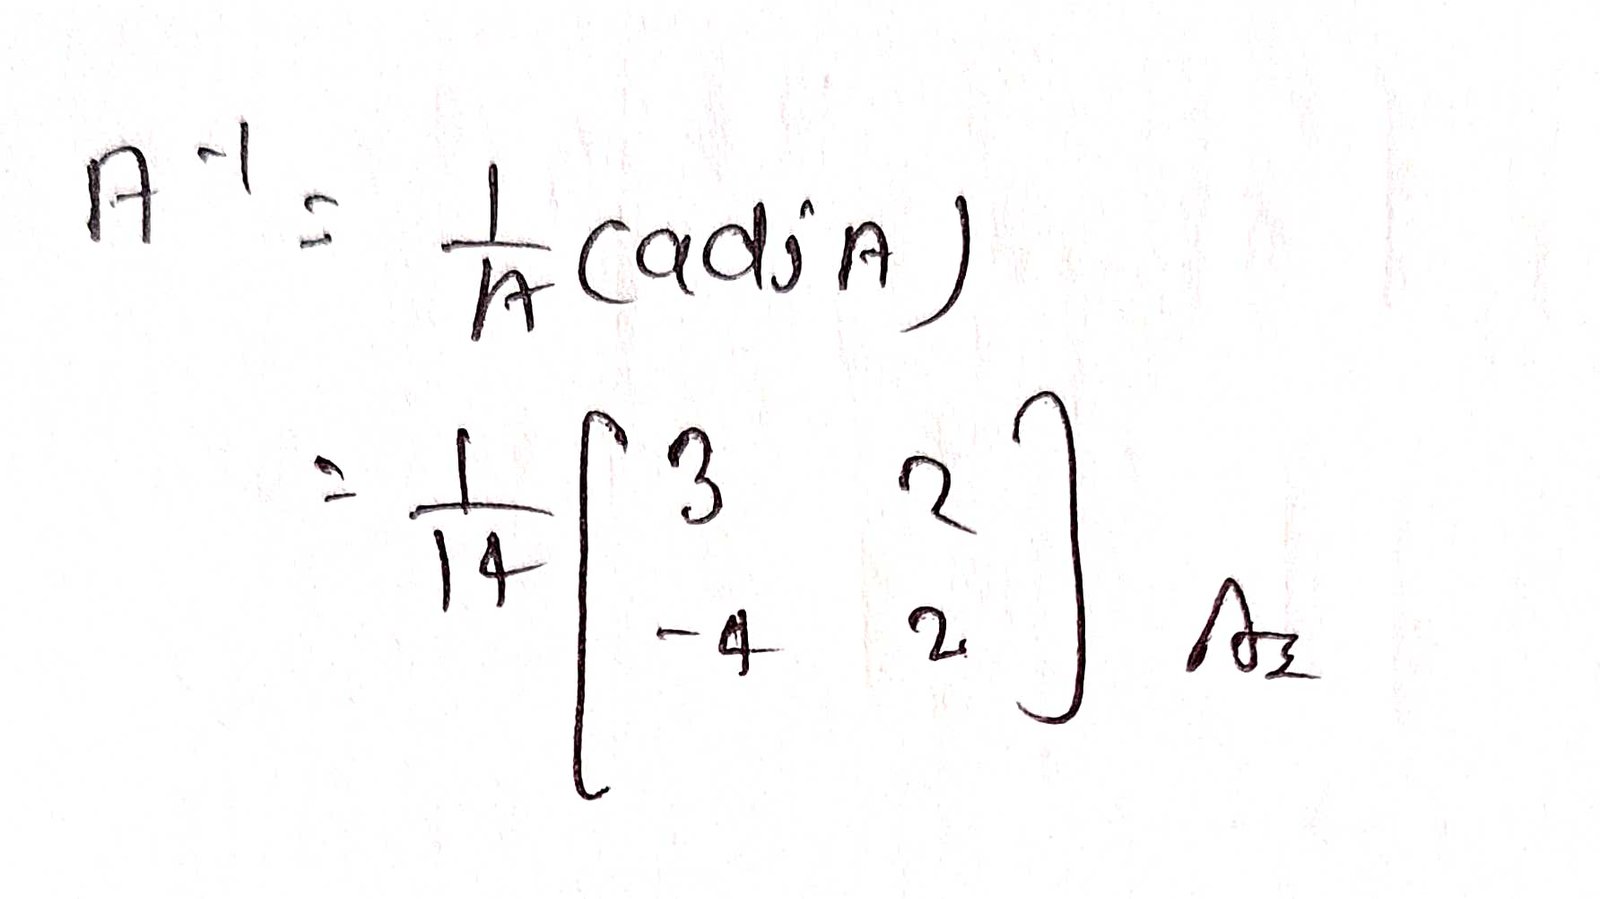 A⁻¹ = 1/A (adj A)
= 1/14 [ 3 2
-4 2 ]